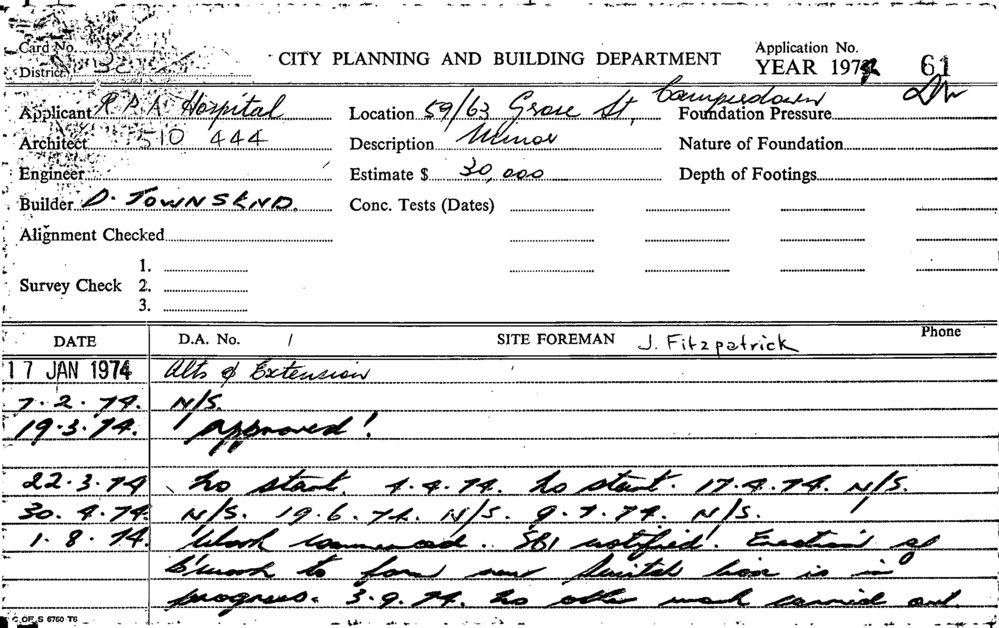 Card No.
District
CITY PLANNING AND BUILDING DEPARTMENT
Application No.
YEAR 1974 61
Applicant R.P.A. Hospital Location 59/63 Grose St, Camperdown Foundation Pressure
Architect 510 444 Description Minor Nature of Foundation
Engineer Estimate $ 30,000 Depth of Footings
Builder D. TOWNSEND. Conc. Tests (Dates)
Alignment Checked
1.
Survey Check 2.
3.
DATE D.A. No. / SITE FOREMAN J. Fitzpatrick Phone
17 JAN 1974 Alts & Extension
7.2.74. N/S.
19.3.74. "Approved"!
22.3.74 No start. 4.4.74. No start. 17.4.74. N/S.
30.4.74 N/S. 19.6.74. N/S. 9.7.74. N/S.
1.8.74. Work commenced. SBI notified. Erection of
b'work to form new switch box is in
progress. 3.9.74. No other work carried out.
C OF S 6760 T6